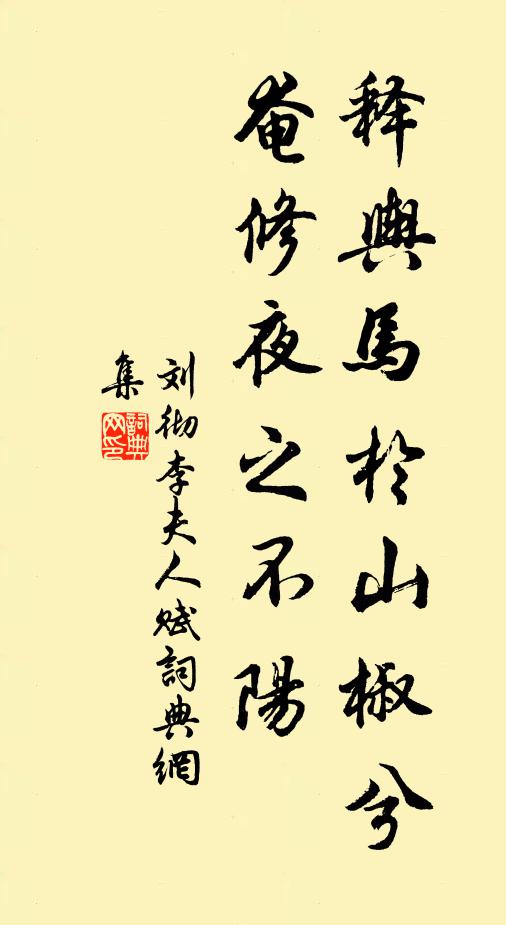 释舆馬於山椒兮
奄修夜之不陽
刘彻李夫人赋詞典網
集
詞典
网印